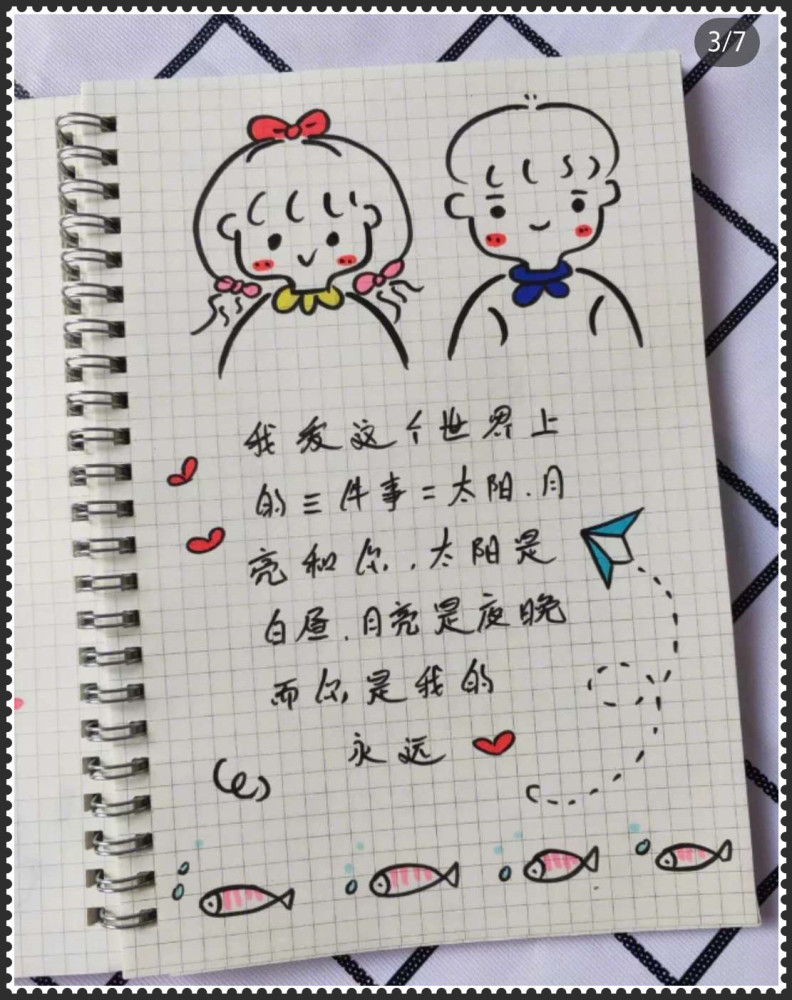 3/7
我爱这个世界上
的三件事=太阳.月
亮和你.太阳是
白昼.月亮是夜晚
而你是我的
永远